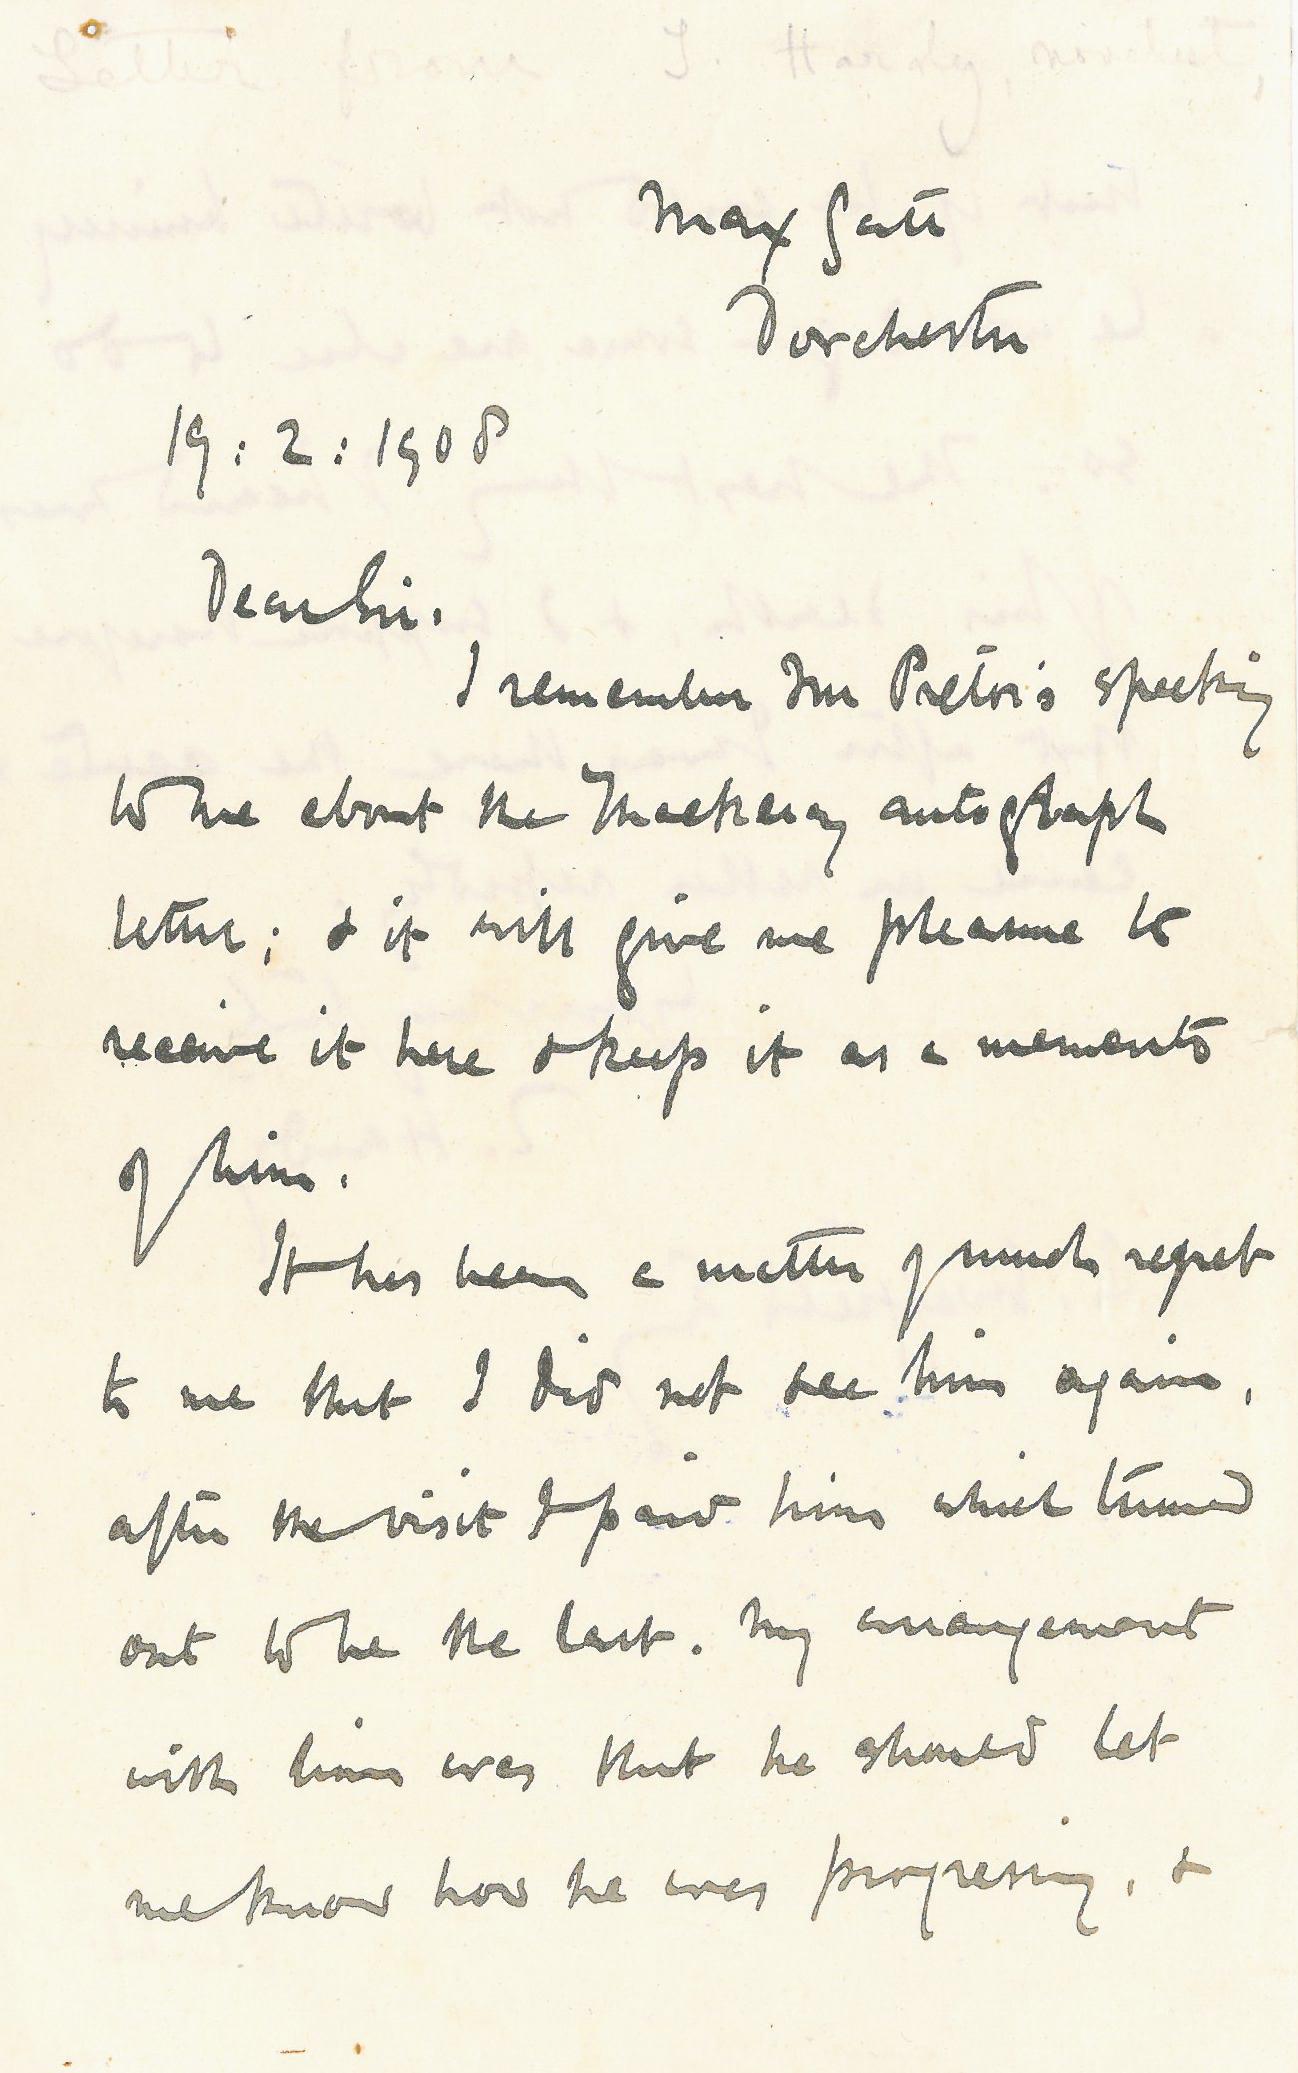 Max Gate
Dorchester
19:2:1908
Dear Sir.
I remember Mr Pretor's speaking
to me about the Thackeray autograph
letter; & it will give me pleasure to
receive it here & keep it as a memento
of him.
It has been a matter of much regret
to me that I did not see him again,
after the visit I paid him which turned
out to be the last. My arrangement
with him was that he should let
me know how he was progressing, &